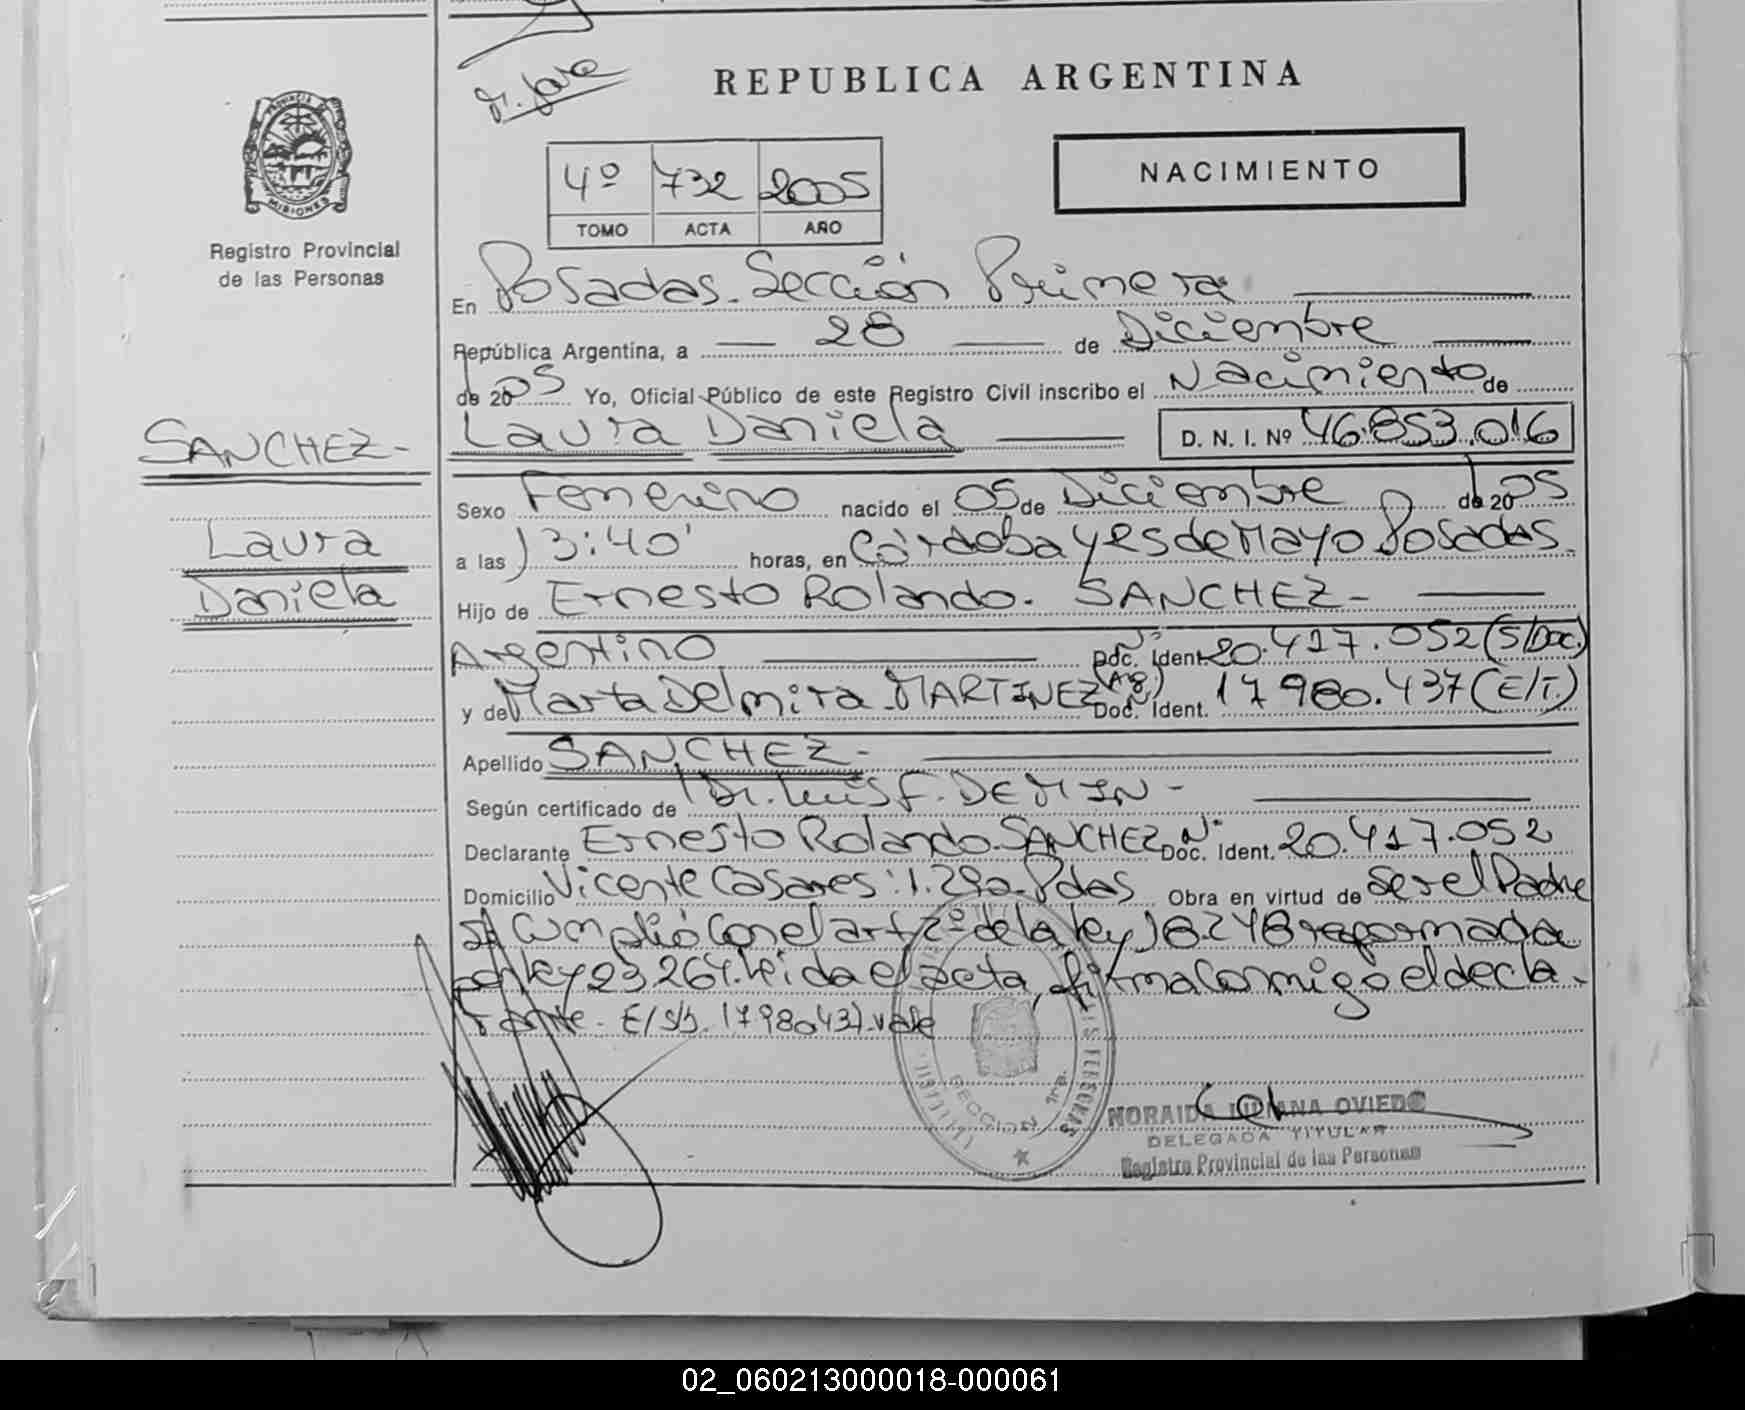 REPUBLICA ARGENTINA
NACIMIENTO
4º 732 2005
TOMO ACTA AÑO
MISIONES
Registro Provincial
de las Personas
En Posadas. Sección Primera
República Argentina, a 28 de Diciembre
de 2005 Yo, Oficial Público de este Registro Civil inscribo el Nacimiento de
Laura Daniela D. N. I. Nº 46.853.016
SANCHEZ-
Laura
Daniela
Sexo Femenino nacido el 05 de Diciembre de 2005
a las 13:40' horas, en Córdoba y es de Mayo Posadas.
Hijo de Ernesto Rolando. SANCHEZ-
Argentino Nº Doc. Ident. 20.417.052 (S/Doc.)
y de Marta Delmira. MARTINEZ (Arg.) Nº Doc. Ident. 17980.437 (E/T.)
Apellido SANCHEZ-
Según certificado de Dr. Luis F. DEMIN-
Declarante Ernesto Rolando. SANCHEZ Nº Doc. Ident. 20.417.052
Domicilio Vicente Casares: 1.292. Pdas Obra en virtud de ser el Padre
Se Cumplió con el art 2º de la ley 18.248 reformada
por ley 23.264. Leida el acta, firma Conmigo el decla-
rante. E/s/b. 17980437. vale
SECCION 1ra.
NORAIDA LILIANA OVIEDO
DELEGADA TITULAR
Registro Provincial de las Personas
02_060213000018-000061